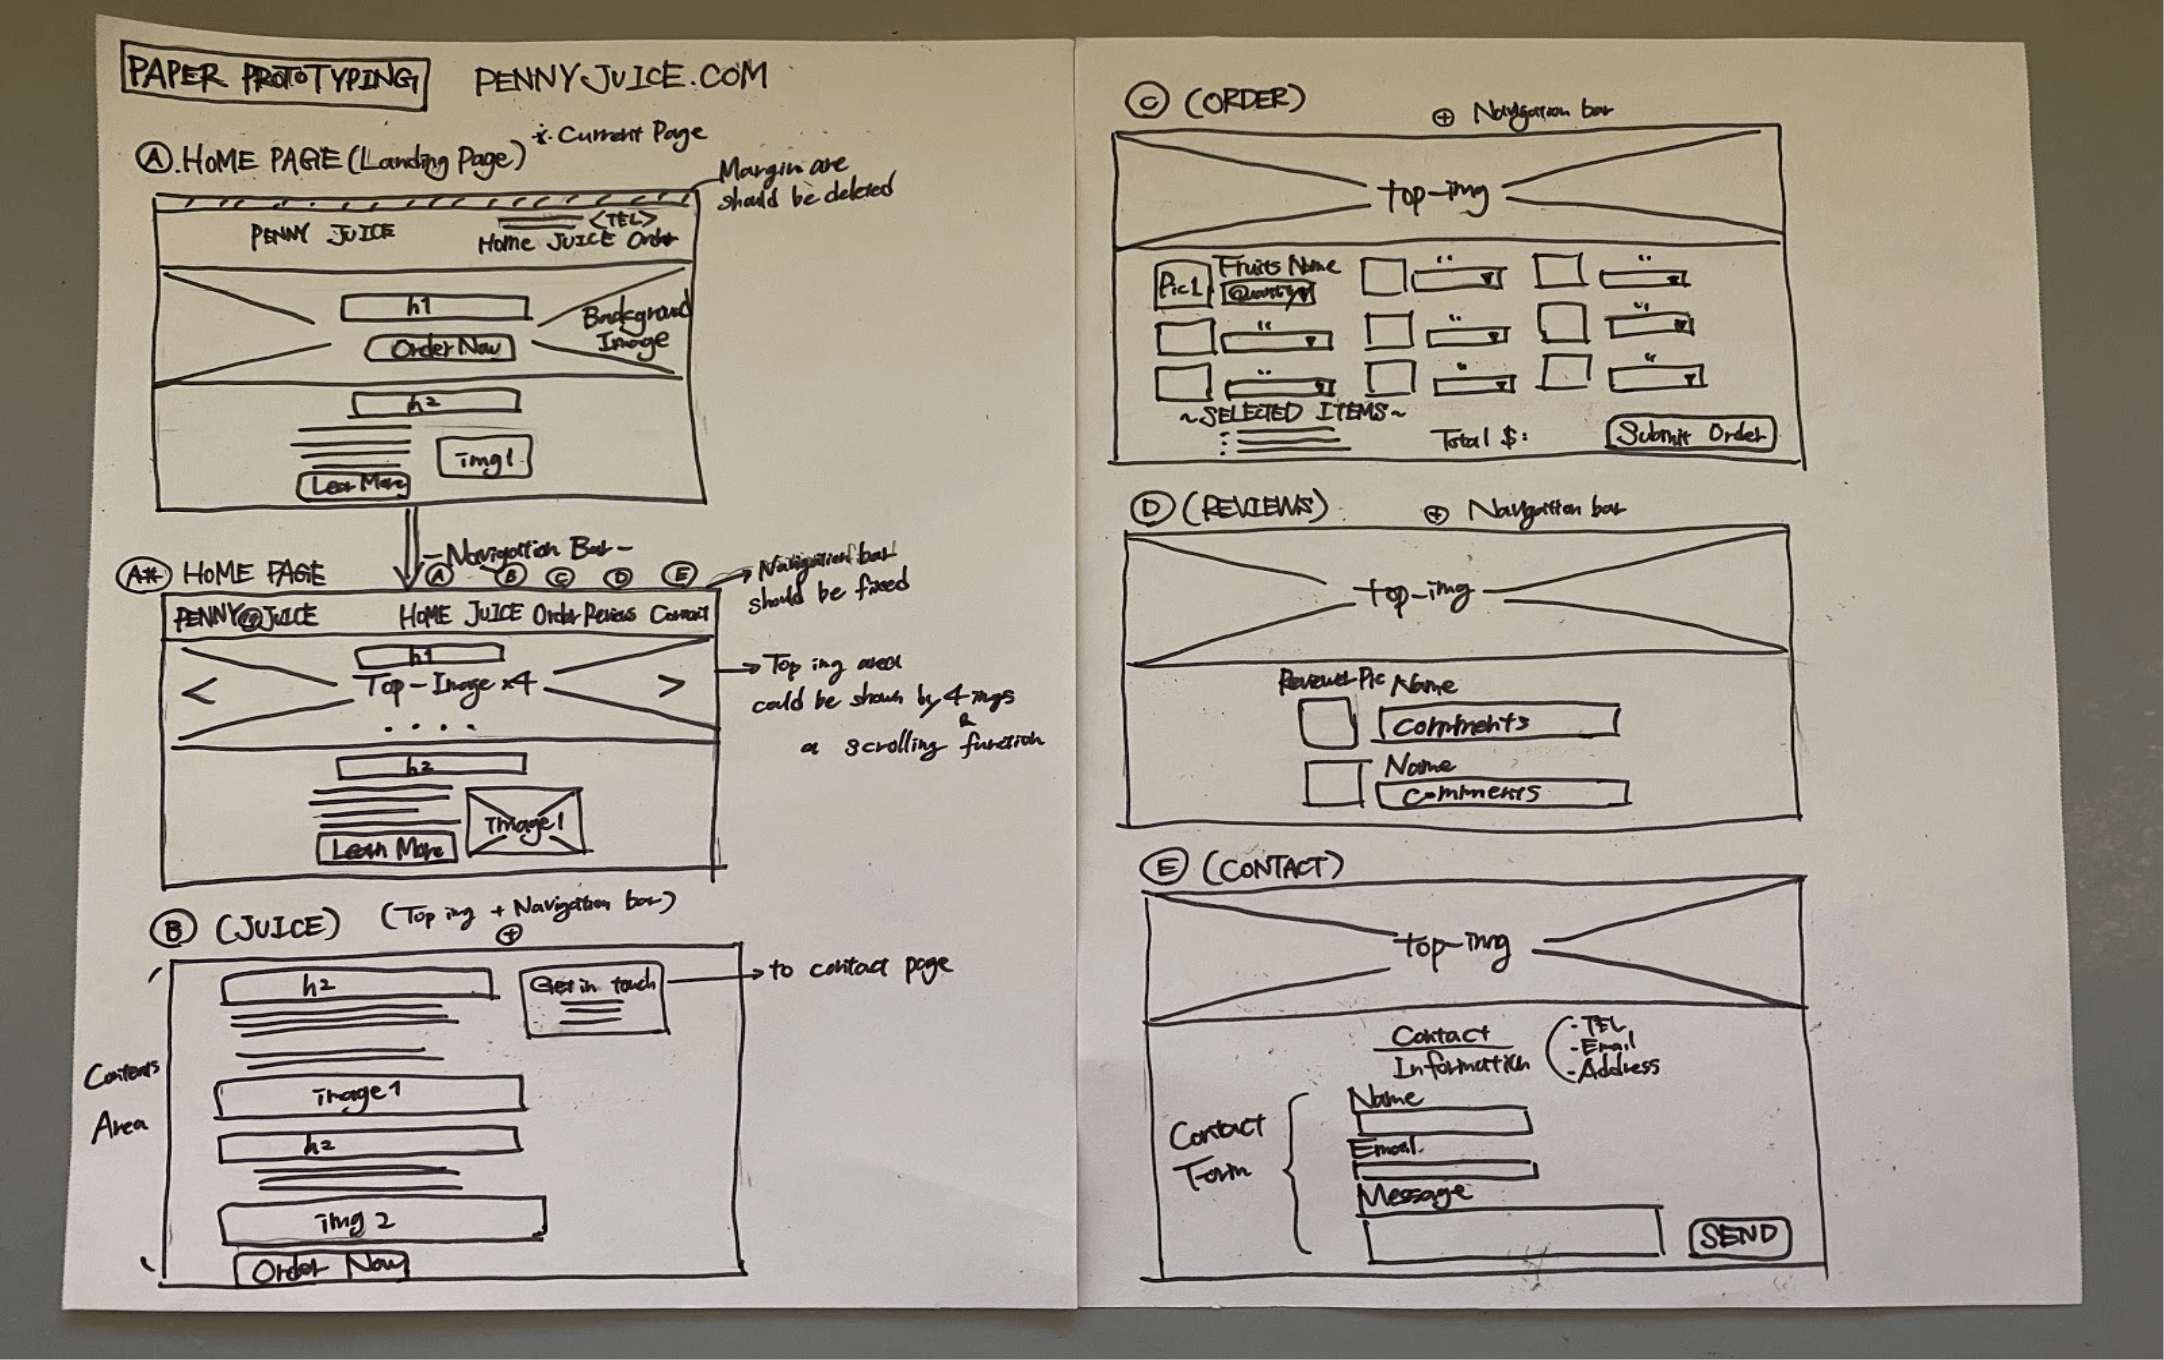 PAPER PROTOTYPING
PENNYJUICE.COM
Ⓐ. HOME PAGE (Landing Page)
※. Current Page
Margin are
should be deleted
<TEL>
PENNY JUICE
Home JUICE Order
h1
Order Now
Background
Image
h2
img1
Lear More
- Navigation Bar -
A* HOME PAGE
Ⓐ Ⓑ Ⓒ Ⓓ Ⓔ
Navigation bar
should be fixed
PENNY@JUICE
HOME JUICE Order Reviews Contact
h1
< Top-Image x4 >
. . . .
Top img area
could be shown by 4 imgs
&
a scrolling function
h2
Image1
Learn More
Ⓑ (JUICE)
(Top img + Navigation bar)
⊕
h2
Get in touch
to contact page
Contents
Area
image1
h2
img 2
Order Now
Ⓒ (ORDER)
⊕ Navigation bar
top-img
Pic1
Fruits Name
Quantity
"
"
"
"
"
"
"
"
~SELECTED ITEMS~
Total $:
Submit Order
Ⓓ (REVIEWS)
⊕ Navigation bar
top-img
Reviewer Pic
Name
Comments
Name
Comments
Ⓔ (CONTACT)
top-img
Contact
Information
- TEL
- Email
- Address
Contact
Form
Name
Email
Message
SEND